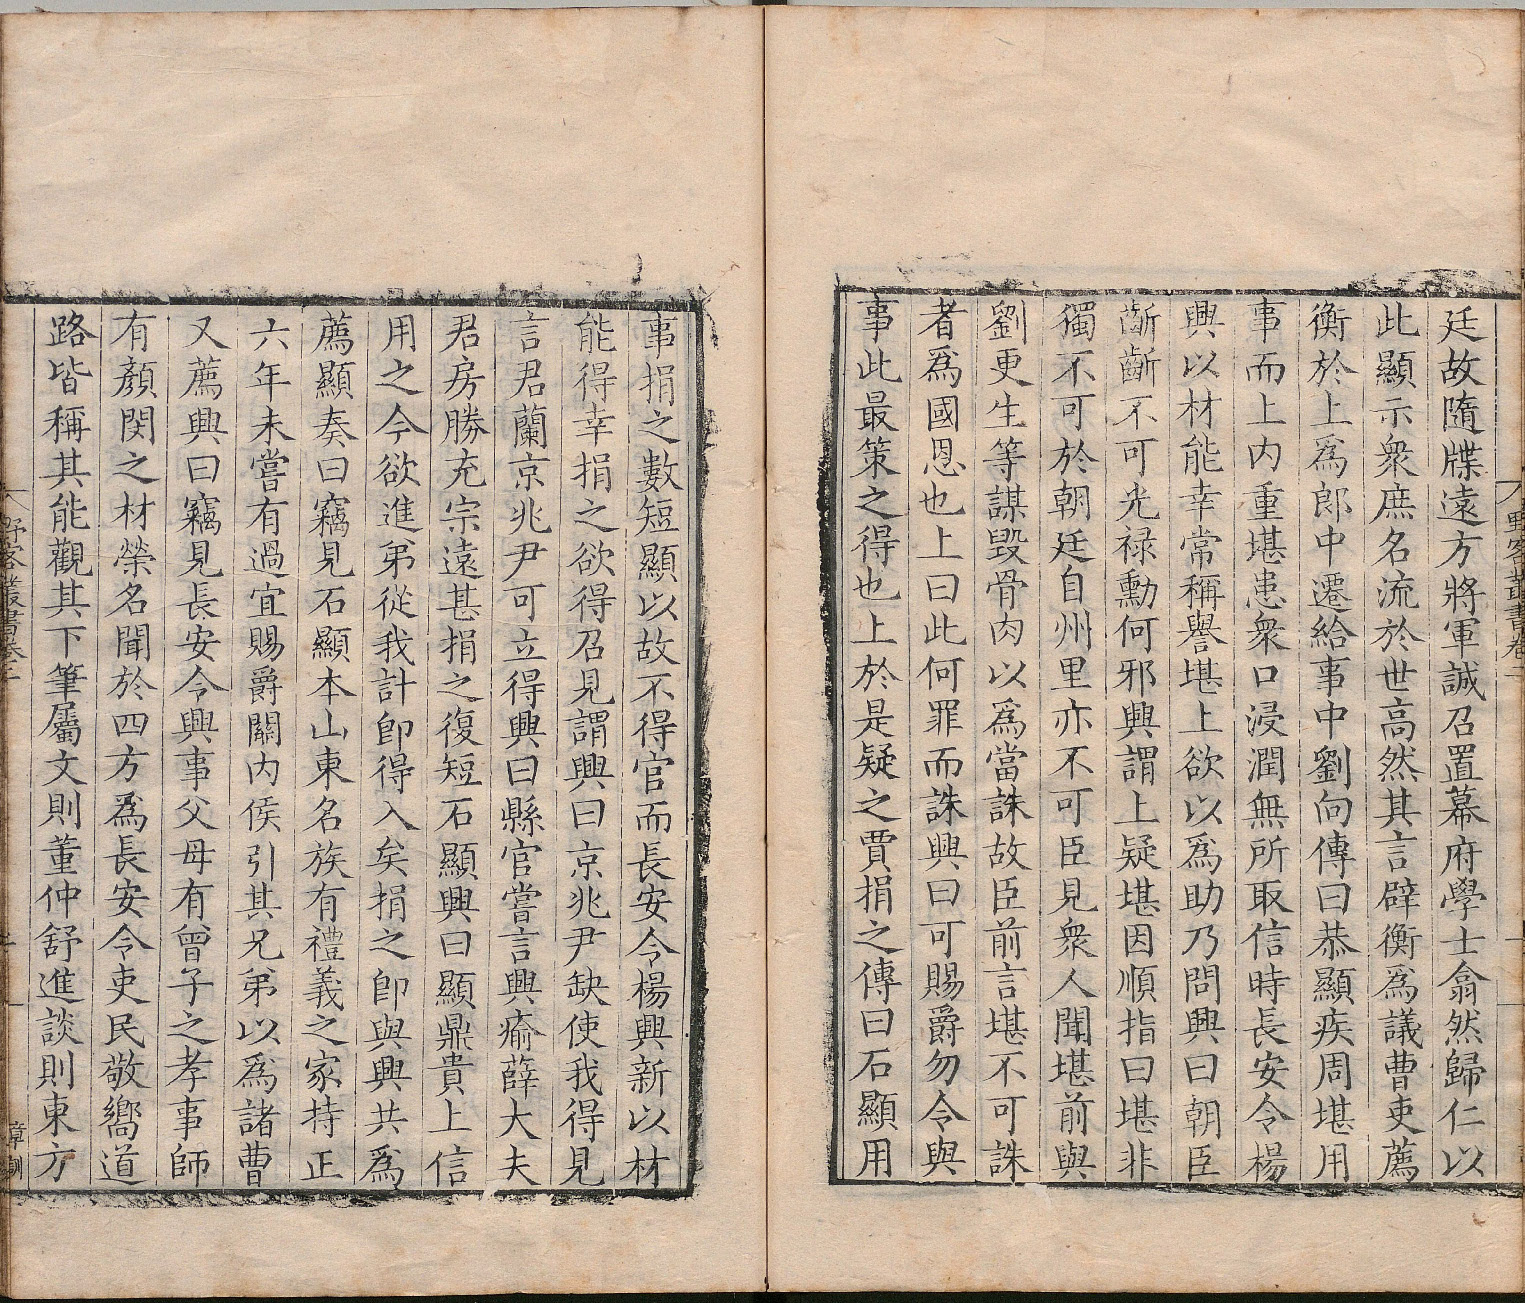 野客叢書卷二
廷故隨牒遠方將軍誠召置幕府學士翕然歸仁以
此顯示衆庶名流於世高然其言辟衡爲議曹吏薦
衡於上爲郎中遷給事中劉向傳曰恭顯疾周堪用
事而上内重堪患衆口浸潤無所取信時長安令楊
興以材能幸常稱譽堪上欲以爲助乃問興曰朝臣
齗齗不可光禄勳何邪興謂上疑堪因順指曰堪非
獨不可於朝廷自州里亦不可臣見衆人聞堪前與
劉更生等謀毀骨肉以爲當誅故臣前言堪不可誅
者爲國恩也上曰此何罪而誅興曰可賜爵勿令與
事此最策之得也上於是疑之賈捐之傳曰石顯用
事捐之數短顯以故不得官而長安令楊興新以材
能得幸捐之欲得召見謂興曰京兆尹缺使我得見
言君蘭京兆尹可立得興曰縣官嘗言興瘉薛大夫
君房勝充宗遠甚捐之復短石顯興曰顯鼎貴上信
用之今欲進弟從我計卽得入矣捐之卽與興共爲
薦顯奏曰竊見石顯本山東名族有禮義之家持正
六年未嘗有過宜賜爵關内侯引其兄弟以爲諸曹
又薦興曰竊見長安令興事父母有曾子之孝事師
有顏閔之材榮名聞於四方爲長安令吏民敬嚮道
路皆稱其能觀其下筆屬文則董仲舒進談則東方
野客叢書卷二